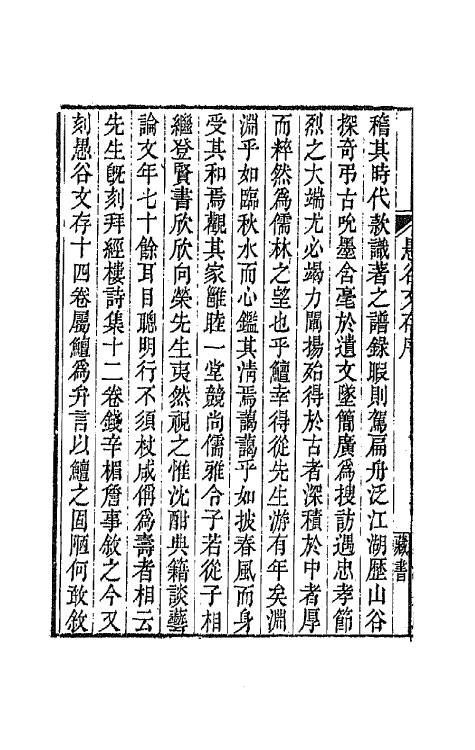 愚谷文存序
藏書
稽其時代款識著之譜錄暇則駕扁舟泛江湖歷山谷
探奇弔古吮墨含毫於遺文墜簡廣爲搜訪遇忠孝節
烈之大端尤必竭力闡揚殆得於古者深積於中者厚
而粹然爲儒林之望也乎鱣幸得從先生游有年矣淵
淵乎如臨秋水而心鑑其清焉藹藹乎如披春風而身
受其和焉觀其家雝睦一堂競尚儒雅令子若從子相
繼登賢書欣欣向榮先生夷然視之惟沈酣典籍談藝
論文年七十餘耳目聰明行不須杖咸稱爲壽者相云
先生旣刻拜經樓詩集十二卷錢辛楣詹事敘之今又
刻愚谷文存十四卷屬鱣爲弁言以鱣之固陋何敢敘